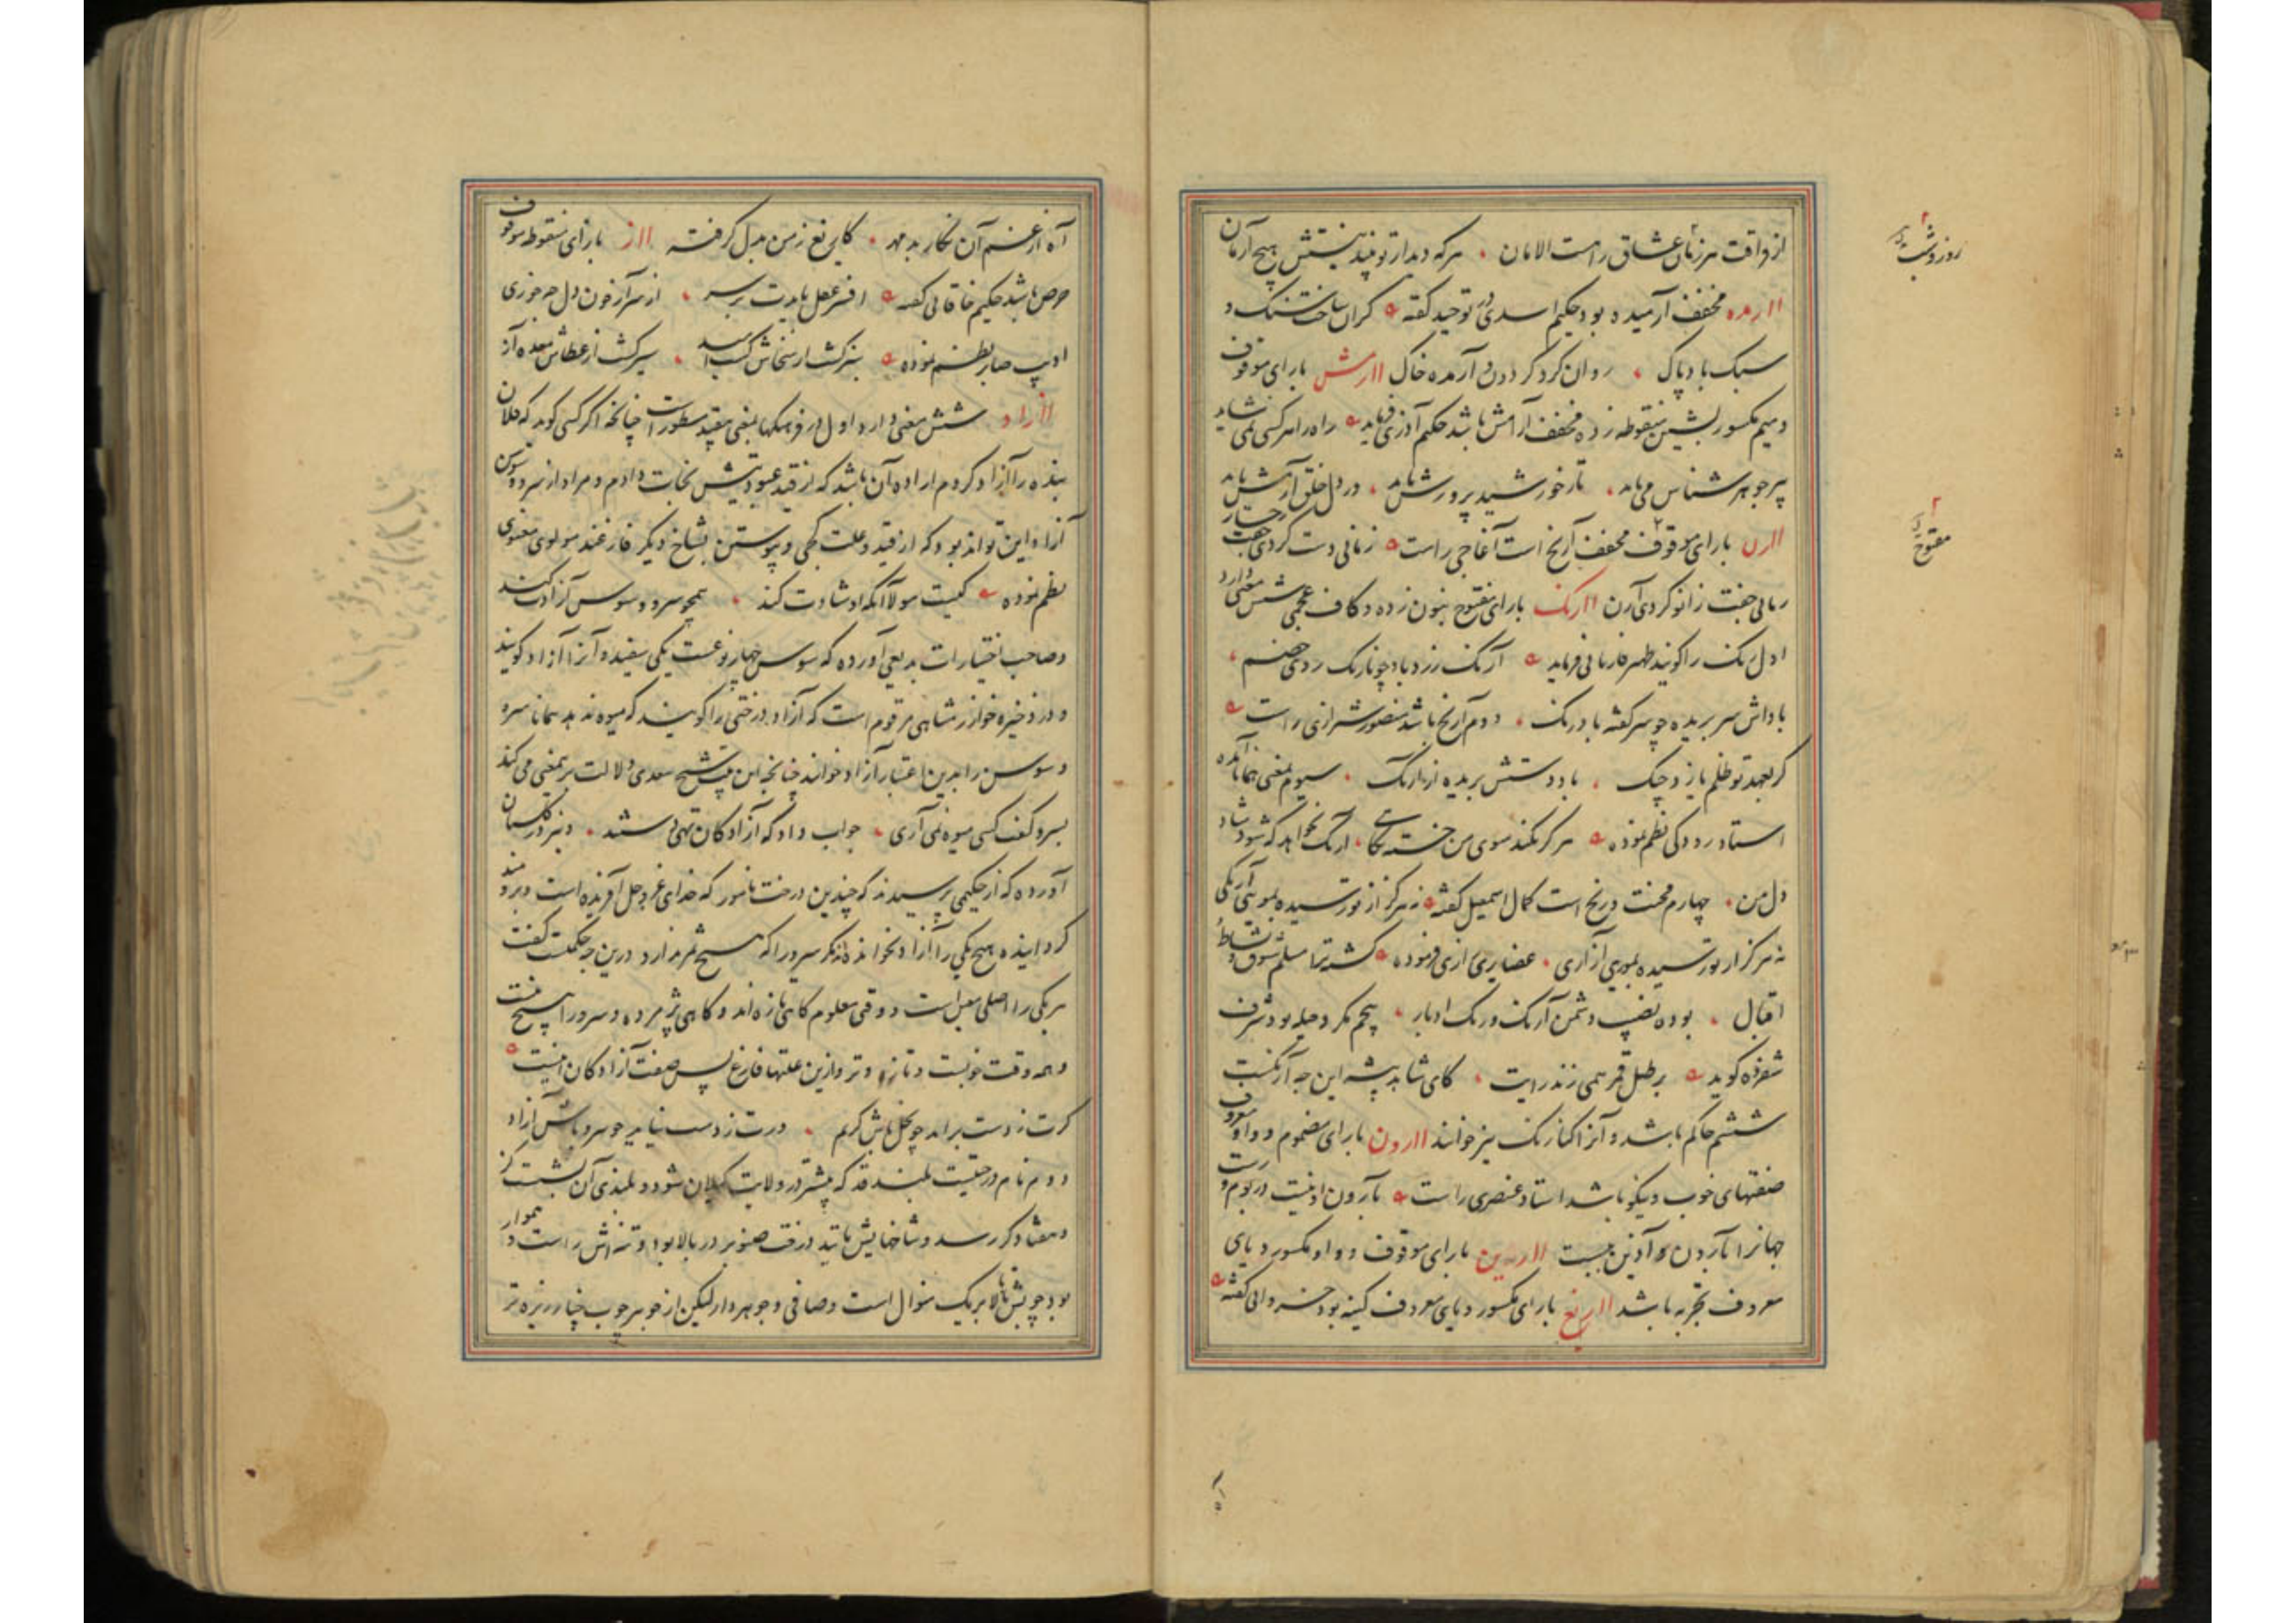 از فراقت هر زمان عشاق راست الامان ، هر که دیدار تو بیند نیستش هیچ آرمان
اارمده مخفف آرمیده بود حکیم اسدی در توحید گفته گران ساخت سنگ و
سبک باد پاک ، روان کرد گردون و آرمده خاک اارمش بارای موقوف
و میم مکسور بشین منقوطه زده مخفف آرامش باشد حکیم آذری فرماید راه را هر کسی نمی شاید
پیر جوهر شناس می باید ، تا ز خورشید پرورش یابد ، در دل خلق آرمش یابد
اارن بارای موقوف مخفف آرنج است آغاجی راست زمانی دست کردی جفت
زمانی جفت زانو کردی آرن اارنک بارای مفتوح بنون زده و کاف عجمی شش معنی دارد
اول رنک را گویند ظهیر فاریابی فرماید آرنک زرد باد چو نارنک روی خصم ،
باداش سر بریده چو سر گفته بادرنک ، دوم آرنج باشد منصور شیرازی راست
گر بعهد تو ظلم یازد چنک ، باد دستش بریده از آرنک ، سیوم بمعنی همانا آمده
استاد رودکی نظم نموده هرگز نکند سوی من خسته نگاهی ، آرنک نخواهد که شود شاد
دل من ، چهارم محنت و رنج است کمال اسمعیل گفته نه هرگز از تو رسیده بمویی آرنگی
نه هرگز از تو رسیده بموری آزاری ، غضایری رازی فرموده گشته تماشا سلم شوق و نشاط
اقبال ، بوده نصیب دشمن آرنک و رنک ادبار ، پنجم مکر و حیله بود شرف
شفروه گوید بر طبل قمر همی زند رایت ، کای شاهد پیشه این چه آرنکست
ششم حاکم باشد و آنرا کنارنک نیز خوانند اارون بارای مضموم و واو معروف
صفتهای خوب و نیکو باشد استاد عنصری راست بآرون او نیست در بوم و رست
جهانرا بآرون و آذین ببست ااروین بارای موقوف و واو مکسور و یای
معروف تجربه باشد ااریغ بارای مکسور و یای معروف کینه بود خسروانی گفته
روز و شب
مفتوح
آه از غم آن نگار بد مهر ، کاریغ ز من بدل گرفته ااز بازای منقوطه موقوف
حرص باشد حکیم خاقانی گفته افسر عقل بایدت بر سر ، از سر آز خون دل چه خوری
ادیب صابر نظم نموده بنز گشت از سخاش کسب ، سیر گشت از عطاش معده آز
اازاد شش معنی دارد اول در فرهنگها بمعنی بیقید مسطور است چنانچه اگر کسی گوید که فلان
بنده را آزاد کردم اراده آن باشد که از قید عبودیتش نجات دادم و مراد از سرو و سوسن
آزاد این تواند بود که از قید و علت کجی و پیوستن بشاخ دیگر فارغند مولوی معنوی
نظم نموده کیست مولا آنکه او شادت کند ، همچو سرو و سوسن آزادت کند
و صاحب اختیارات بدیعی آورده که سوسن چهار نوعست یکی سفید و آنرا آزاد گویند
و در ذخیره خوارزمشاهی مرقوم است که آزاد درختی را گویند که میوه ندهد همانا سرو
و سوسن را بدین اعتبار آزاد خوانند چنانچه این بیت شیخ سعدی دلالت برین معنی می کند
بسرو گفت کسی میوه نمی آری ، جواب داد که آزادکان تهی دستند ، و نیز در گلستان
آورده که از حکیمی پرسیدند که چندین درخت نامور که خدای عز و جل آفریده است و برومند
کردانیده هیچ یکی را آزاد نخوانده اند مگر سرو را که هیچ ثمر ندارد درین چه حکمت گفت
هر یکی را اصلی معین است و وقتی معلوم گاهی تازه اند و گاهی پژمرده و سرو را هیچ نیست
و همه وقت خوبست و تازه و تر و ازین علتها فارغ پس صفت آزادکان اینست
گرت ز دست برآید چو نخل باش کریم ، ورت ز دست نیاید چو سرو باش آزاد
دوم نام درختیست بلند قد که بیشتر در ولایت گیلان شود و بلندی آن بشست گز
و هفتاد گز رسد و شاخهایش مانند درخت صنوبر در بالا بود و تنه اش راست و هموار
بود چوبش تا بالا بر یک منوال است و صافی و جوهردار لیکن از جوهر چوب چنار ریزه تر